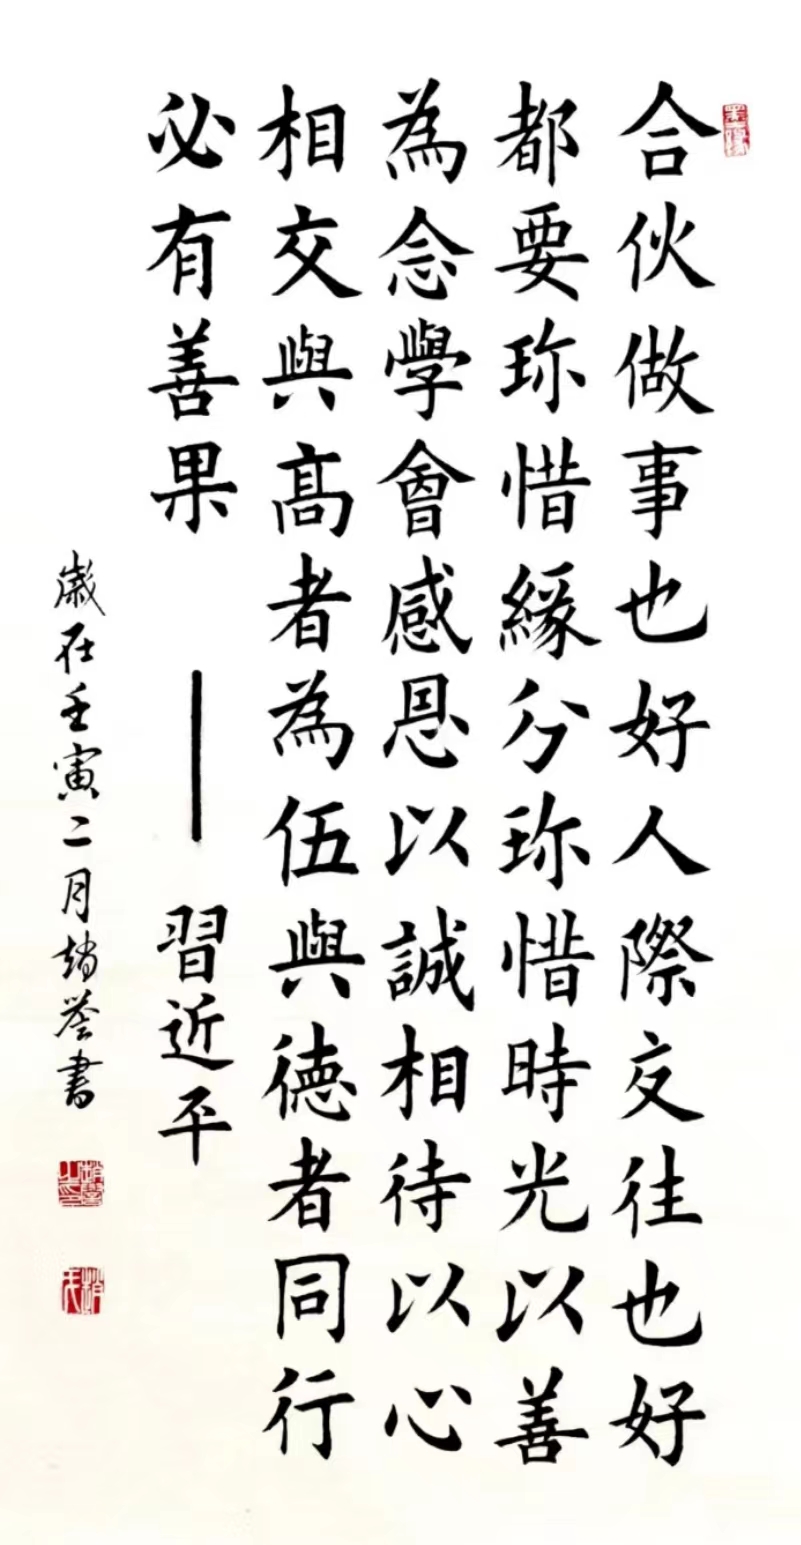 合伙做事也好人際交往也好
都要珎惜緣分珎惜時光以善
為念學會感恩以誠相待以心
相交與髙者為伍與德者同行
必有善果——習近平
歲在壬寅二月趙譽書